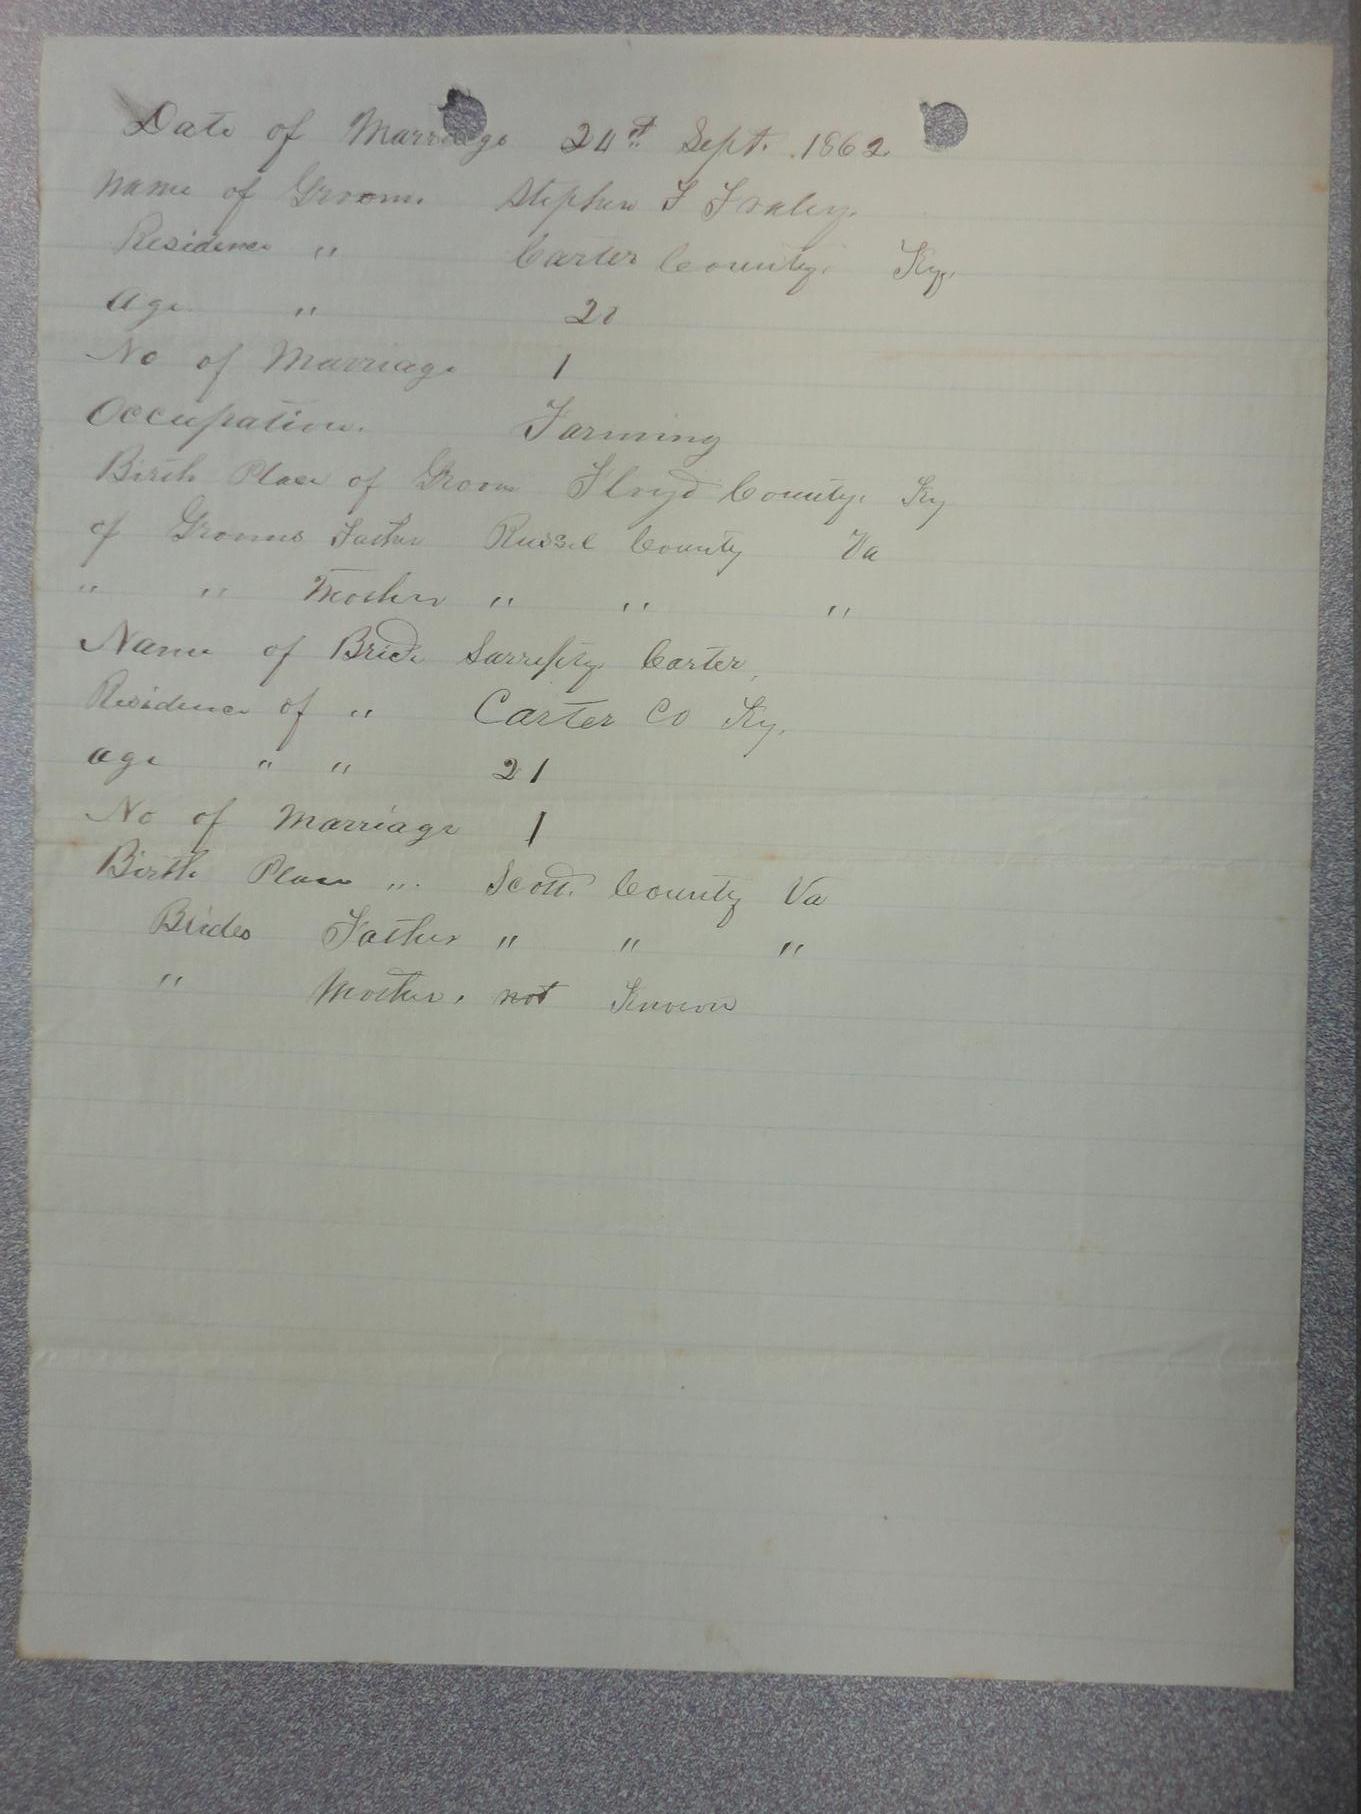 Date of Marriage 24th Sept. 1862
Name of Groom. Stephen F Fraley.
Residence " Carter County. Ky.
Age " 
No of Marriage 1
Occupation. Farming
Birth Place of Groom Floyd County. Ky
of Grooms Father Russel County Va
" " Mother " " "
Name of Bride Carter,
Residence of " Carter Co Ky.
age " " 21
No of Marriage 1
Birth Place " Scott County Va
Brides Father " " "
" Mother. not Known